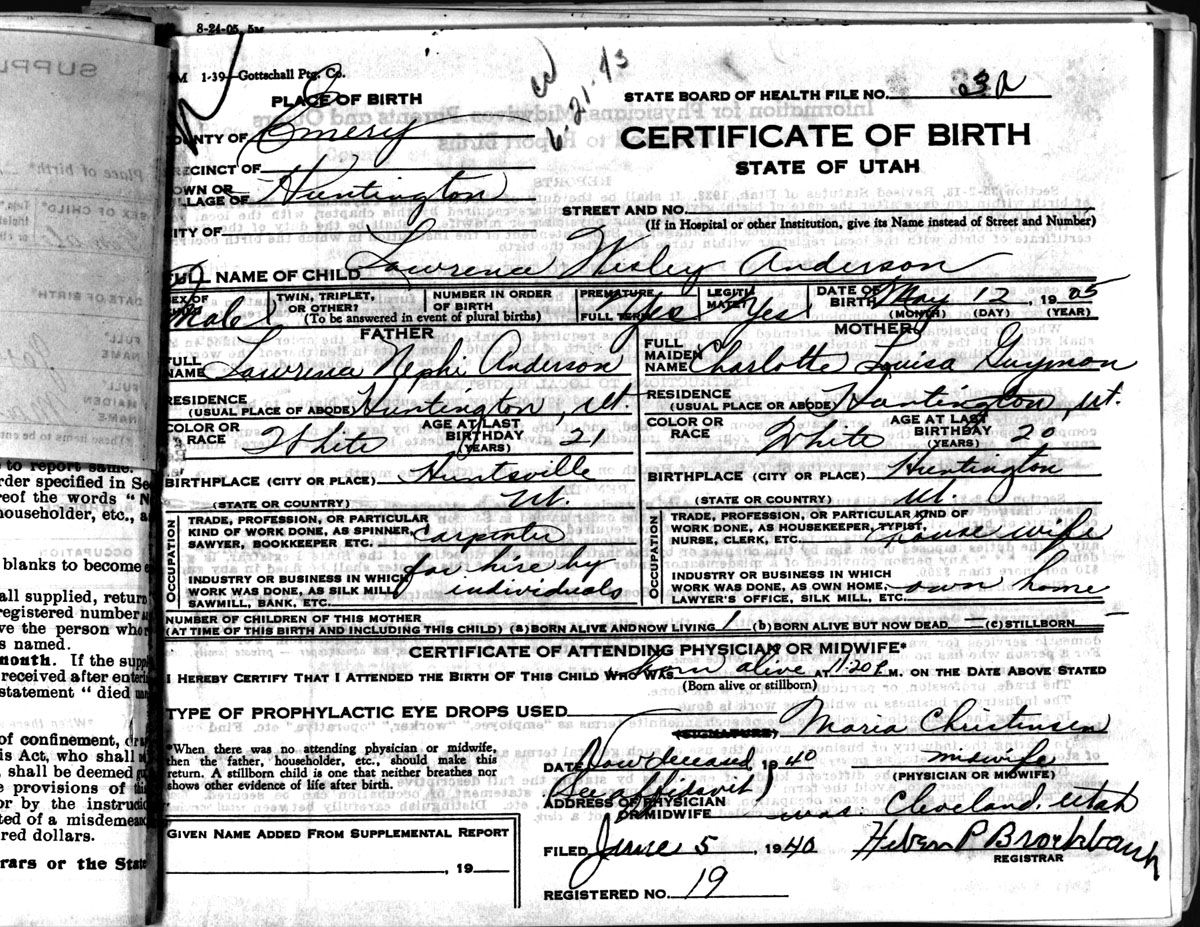 8-24-05, 5M
M 1-39—Gottschall Ptg. Co.
6-21-43
PLACE OF BIRTH
COUNTY OF Emery
PRECINCT OF
TOWN OR
VILLAGE OF Huntington
CITY OF
STATE BOARD OF HEALTH FILE NO.
CERTIFICATE OF BIRTH
STATE OF UTAH
STREET AND NO.
(If in Hospital or other Institution, give its Name instead of Street and Number)
FULL NAME OF CHILD Lawrence Wesley Anderson
SEX OF
CHILD Male
TWIN, TRIPLET,
OR OTHER?
NUMBER IN ORDER
OF BIRTH
(To be answered in event of plural births)
PREMATURE
FULL TERM Yes
LEGITI
MATE? Yes
DATE OF
BIRTH May 12, 1905
(MONTH) (DAY) (YEAR)
FATHER
FULL
NAME Lawrence Nephi Anderson
RESIDENCE
(USUAL PLACE OF ABODE) Huntington, Ut.
COLOR OR
RACE White
AGE AT LAST
BIRTHDAY 21
(YEARS)
BIRTHPLACE (CITY OR PLACE) Huntsville
(STATE OR COUNTRY) Ut.
OCCUPATION
TRADE, PROFESSION, OR PARTICULAR
KIND OF WORK DONE, AS SPINNER,
SAWYER, BOOKKEEPER ETC. Carpenter
INDUSTRY OR BUSINESS IN WHICH
WORK WAS DONE, AS SILK MILL,
SAWMILL, BANK, ETC.
for hire by
individuals
MOTHER
FULL
MAIDEN
NAME Charlotte Louisa Guymon
RESIDENCE
(USUAL PLACE OF ABODE) Huntington, Ut.
COLOR OR
RACE White
AGE AT LAST
BIRTHDAY 20
(YEARS)
BIRTHPLACE (CITY OR PLACE) Huntington
(STATE OR COUNTRY) Ut.
OCCUPATION
TRADE, PROFESSION, OR PARTICULAR KIND OF
WORK DONE, AS HOUSEKEEPER, TYPIST,
NURSE, CLERK, ETC. house wife
INDUSTRY OR BUSINESS IN WHICH
WORK WAS DONE, AS OWN HOME,
LAWYER'S OFFICE, SILK MILL, ETC. own home
NUMBER OF CHILDREN OF THIS MOTHER
(AT TIME OF THIS BIRTH AND INCLUDING THIS CHILD) (a) BORN ALIVE AND NOW LIVING 1 (b) BORN ALIVE BUT NOW DEAD — (c) STILLBORN —
CERTIFICATE OF ATTENDING PHYSICIAN OR MIDWIFE*
I HEREBY CERTIFY THAT I ATTENDED THE BIRTH OF THIS CHILD WHO WAS born alive AT 11:20 P.M. ON THE DATE ABOVE STATED
(Born alive or stillborn)
TYPE OF PROPHYLACTIC EYE DROPS USED
(SIGNATURE) Maria Christensen
*When there was no attending physician or midwife,
then the father, householder, etc., should make this
return. A stillborn child is one that neither breathes nor
shows other evidence of life after birth.
DATE (Now deceased, 1940 midwife
(PHYSICIAN OR MIDWIFE)
See affidavit)
ADDRESS OF PHYSICIAN
OR MIDWIFE was: Cleveland, Utah
GIVEN NAME ADDED FROM SUPPLEMENTAL REPORT
, 19
FILED June 5, 1940 Helven P Brockbank
REGISTRAR
REGISTERED NO. 19
to report same.
order specified in Se
reof the words "N
householder, etc., a
blanks to become
all supplied, return
registered number
ve the person whose
s named.
month. If the supp
received after enter
statement "died
of confinement,
is Act, who shall
, shall be deemed
e provisions of
or by the instruc
ted of a misdemea
red dollars.
rars or the State